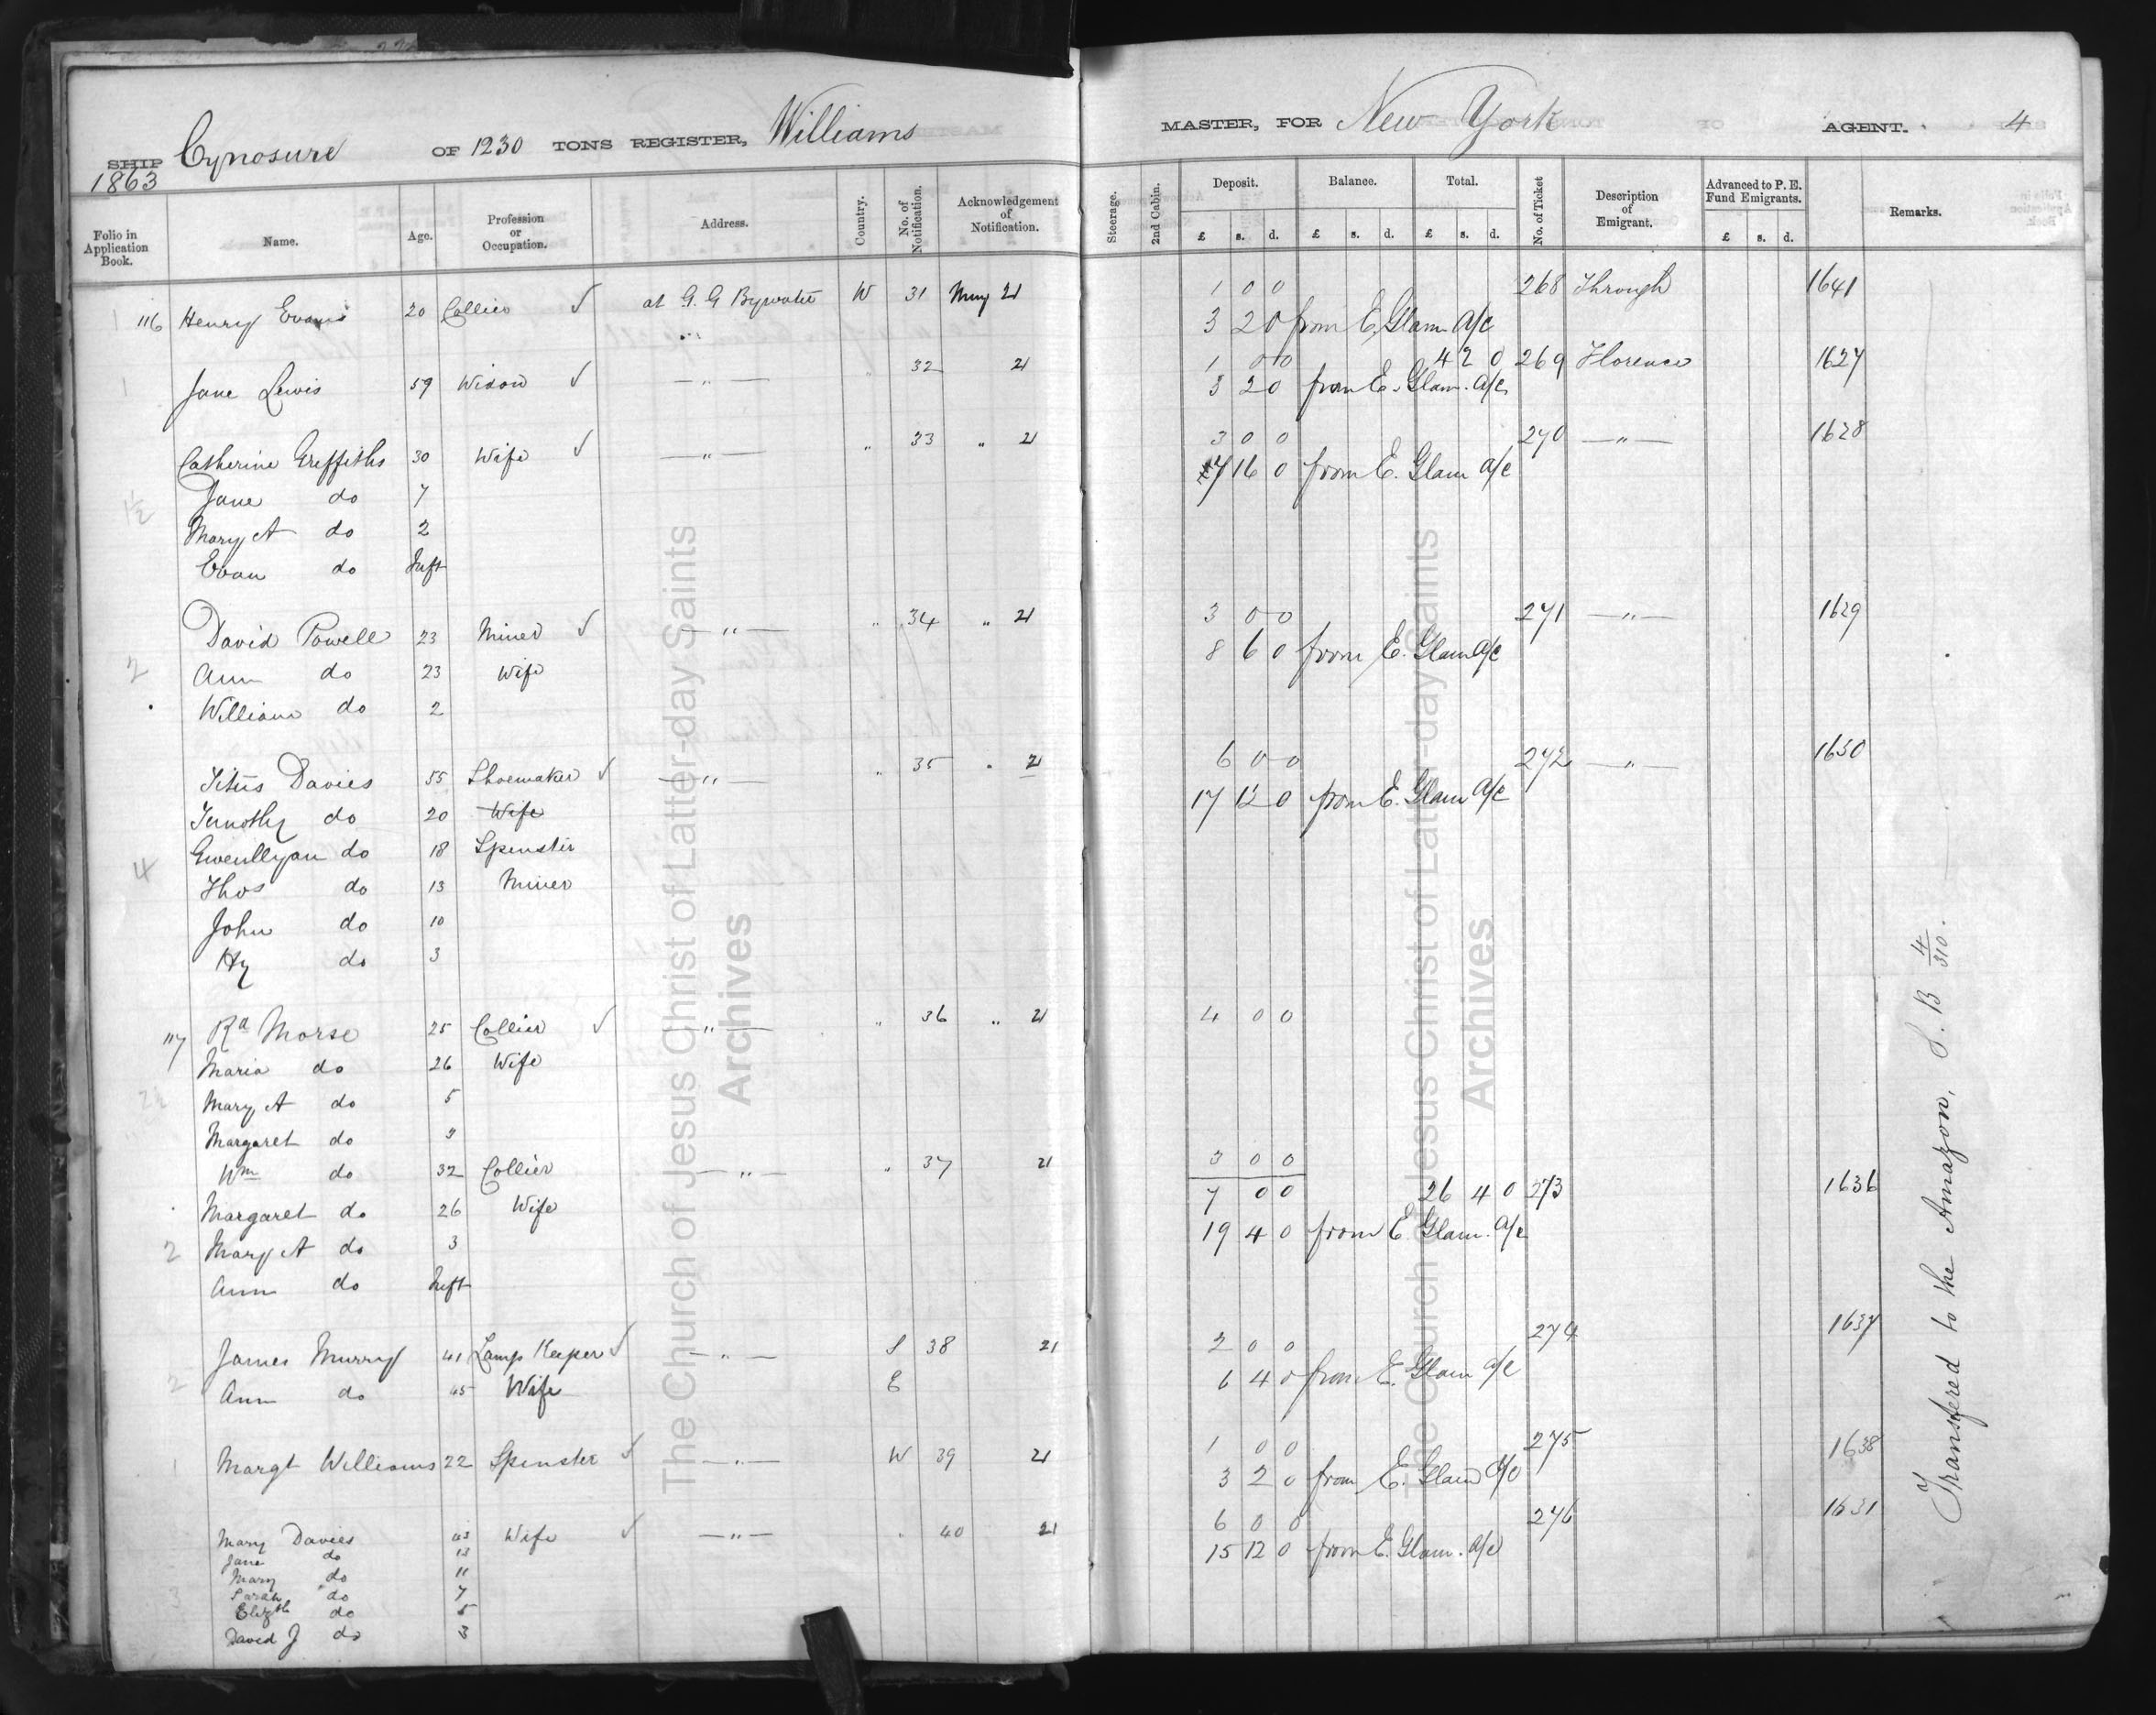 SHIP Cynosure OF 1230 TONS REGISTER, Williams MASTER, FOR New York AGENT. 4
1863
Folio in Application Book. Name. Age. Profession or Occupation. Address. Country. No. of Notification. Acknowledgement of Notification. Steerage. 2nd Cabin. Deposit. £ s. d. Balance. £ s. d. Total. £ s. d. No. of Ticket Description of Emigrant. Advanced to P. E. Fund Emigrants. £ s. d. Remarks.
1 116 Henry Evans 20 Collier ✓ at G. G Bywater W 31 May 21 1 0 0 268 Through 1641
3 2 0 from E. Glam a/c
1 Jane Lewis 59 Widow ✓ — " — " 32 21 1 0 0 4 2 0 269 Florence 1627
3 2 0 from E. Glam. a/c
Catherine Griffiths 30 Wife ✓ — " — " 33 " 21 3 0 0 270 — " — 1628
7 16 0 from E. Glam a/c
1½ Jane do 7
Mary A do 2
Evan do Inft
David Powell 23 Miner ✓ — " — " 34 " 21 3 0 0 271 — " — 1629
8 6 0 from E. Glam a/c
2 Ann do 23 Wife
William do 2
Titus Davies 55 Shoemaker ✓ — " — " 35 " 21 6 0 0 272 — " — 1630
17 12 0 from E. Glam a/c
Timothy do 20 Wife
Gwenllyan do 18 Spinster
4 Thos do 13 Miner
John do 10
Hy do 3
117 Rd Morse 25 Collier ✓ — " — " 36 " 21 4 0 0
Maria do 26 Wife
2½ Mary A do 5
Margaret do 3
Wm do 32 Collier — " — " 37 21 3 0 0
7 0 0 26 4 0 273 1636
Margaret do 26 Wife
19 4 0 from E. Glam. a/c
2 Mary A do 3
Ann do Inft
James Murray 41 Lamp Keeper ✓ — " — S 38 21 2 0 0 274 1637
6 4 0 from E. Glam a/c
2 Ann do 45 Wife E
1 Margt Williams 22 Spinster ✓ — " — W 39 21 1 0 0 275 1638
3 2 0 from E. Glam a/c
Mary Davies 43 Wife ✓ — " — " 40 21 6 0 0 276 1631
15 12 0 from E. Glam. a/c
Jane do 13
Mary do 11
3 Sarah do 7
Elizth do 5
David J do 3
Transfered to the Amazon, S. B 4/310.
The Church of Jesus Christ of Latter-day Saints
Archives
The Church of Jesus Christ of Latter-day Saints
Archives